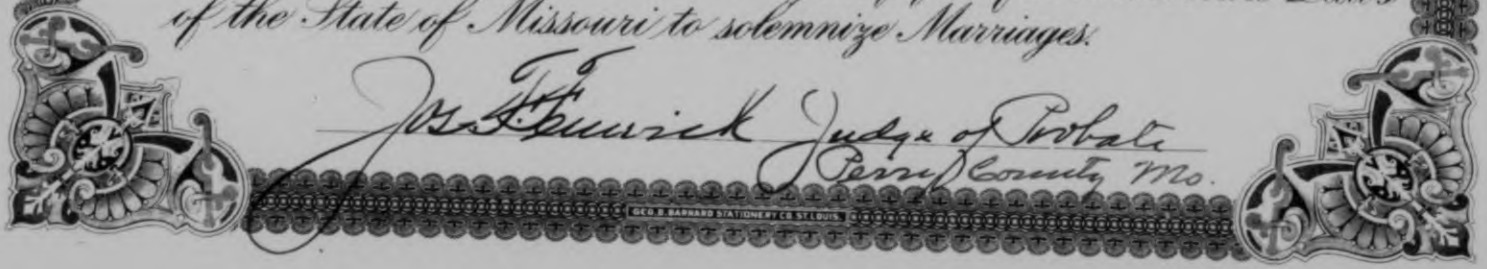 of the State of Missouri to solemnize Marriages.
Jos. F. Fenwick Judge of Probate
Perry County Mo.
GEO. D. BARNARD STATIONERY CO. ST. LOUIS.